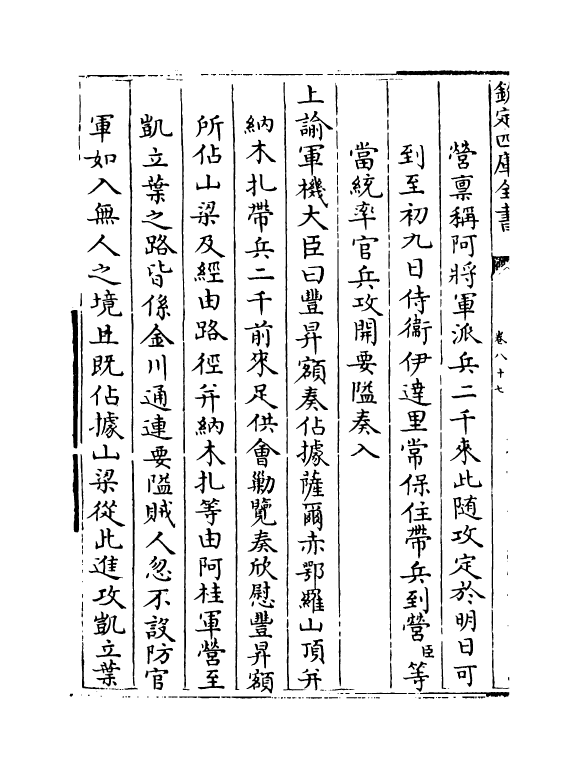 欽定四庫全書
卷八十七
營稟稱阿將軍派兵二千來此随攻定於明日可
到至初九日侍衛伊達里常保住帶兵到營臣等
當統率官兵攻開要隘奏入
上諭軍機大臣曰豐昇額奏佔據薩爾赤鄂羅山頂并
納木扎帶兵二千前來足供會勦覽奏欣慰豐昇額
所佔山梁及經由路徑并納木扎等由阿桂軍營至
凱立葉之路皆係金川通連要隘賊人忽不設防官
軍如入無人之境且既佔據山梁從此進攻凱立葉